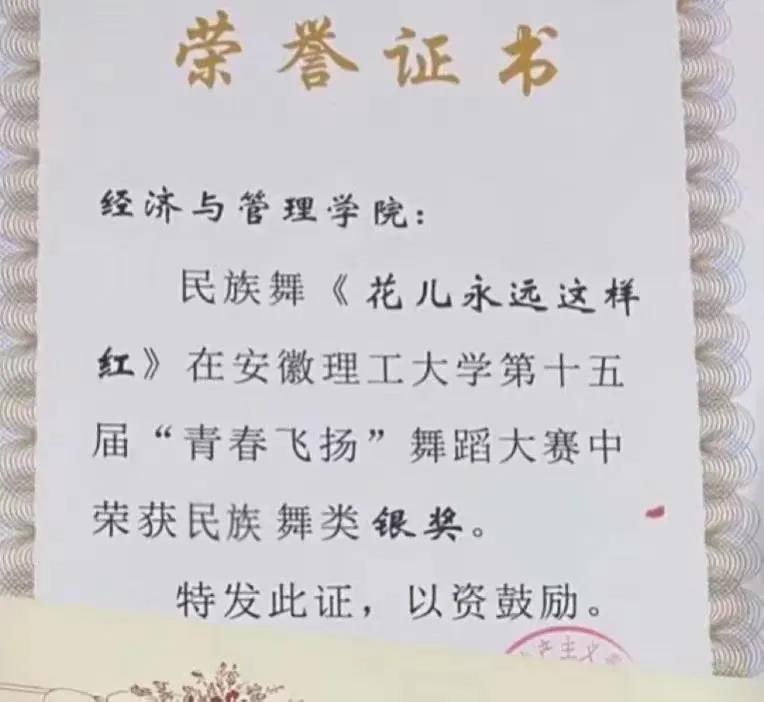 荣誉证书
经济与管理学院：
民族舞《花儿永远这样
红》在安徽理工大学第十五
届“青春飞扬”舞蹈大赛中
荣获民族舞类银奖。
特发此证，以资鼓励。
产主义